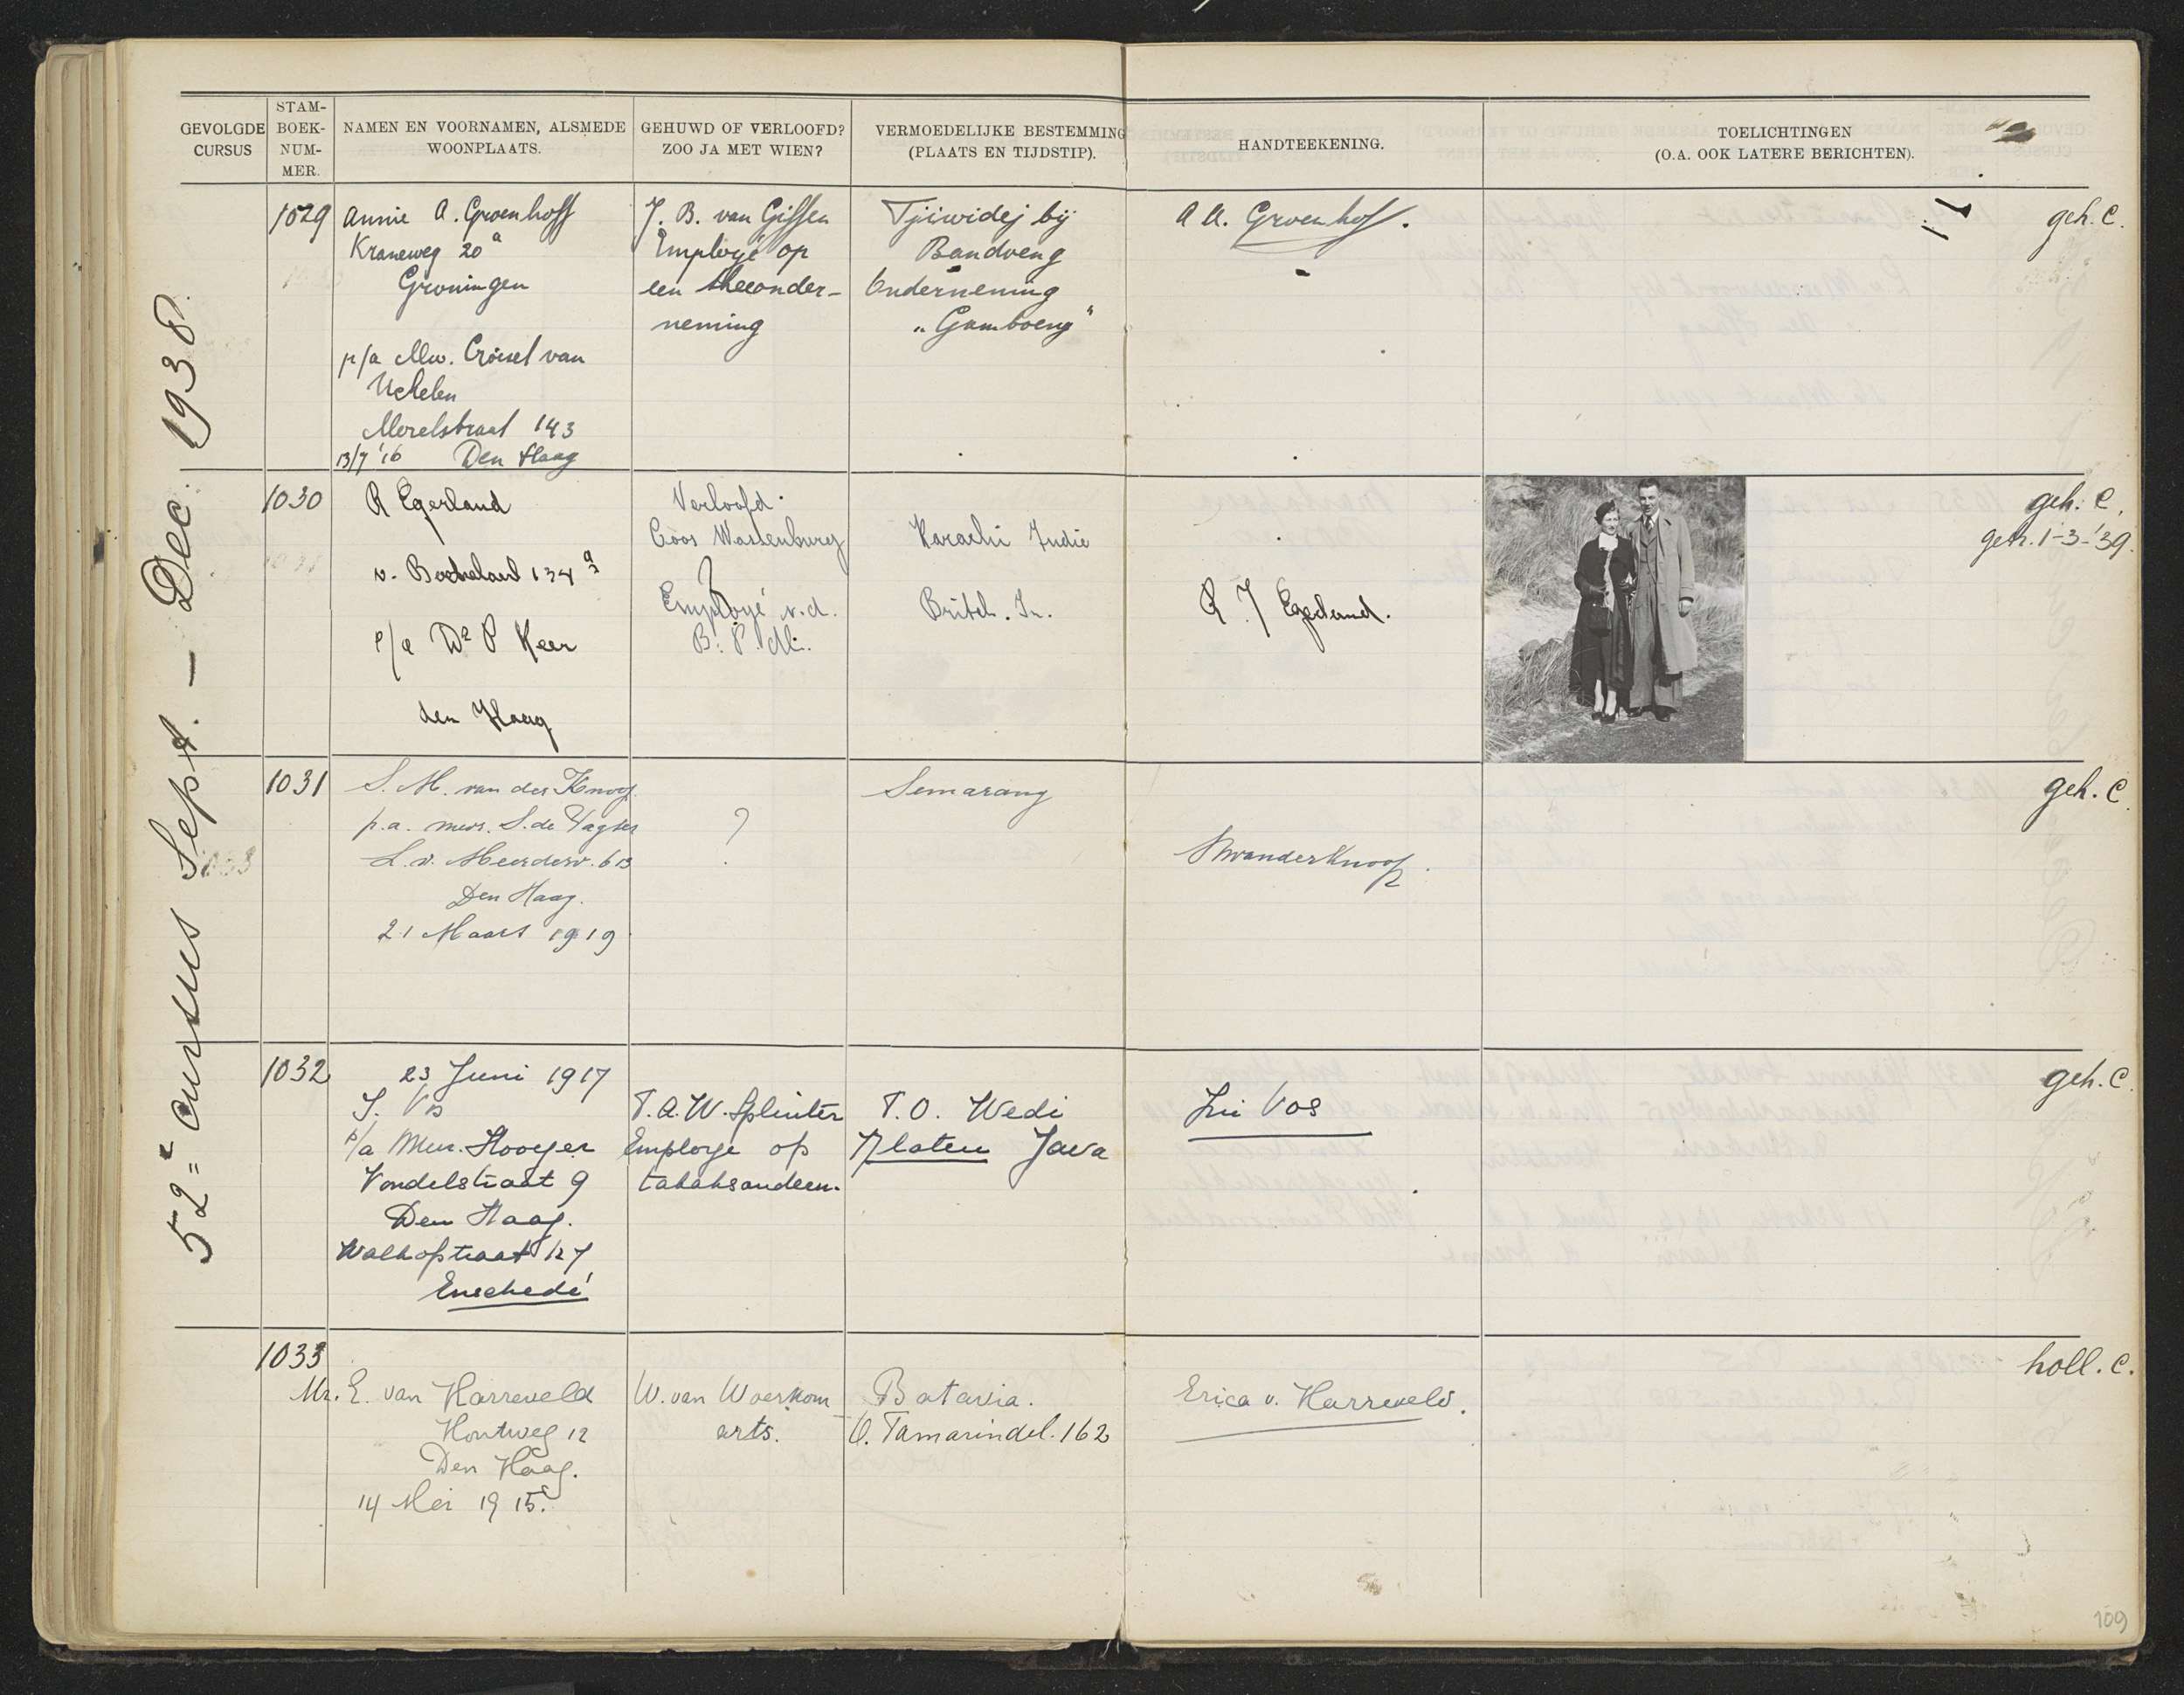 GEVOLGDE CURSUS
STAM-BOEK-NUM-MER.
NAMEN EN VOORNAMEN, ALSMEDE WOONPLAATS.
GEHUWD OF VERLOOFD? ZOO JA MET WIEN?
VERMOEDELIJKE BESTEMMING (PLAATS EN TIJDSTIP).
HANDTEEKENING.
TOELICHTINGEN (O.A. OOK LATERE BERICHTEN).
52e cursus Sept. — Dec. 1938.
1029
Annie A. Groenhoff
Kraneweg 20a
Groningen
p/a Mw. Croiset van
Uchelen
Merelstraat 143
13/7 '16 Den Haag
J. B. van Gissen
Employé op
een theeonder-
neming
Tjiwidej bij
Bandoeng
Onderneming
"Gamboeng"
A A. Groenhof.
geh. C.
1030
R Egerland
v. Boetzelaerl 134a
p/a Dr P Keer
den Haag
Verloofd.
Coos Wassenburg
Employé v.d.
B. P. M.
Karachi Indie
Britch. In.
R J Egerland.
geh. C.
getr. 1-3-'39.
1031
S. M. van der Knoop
p.a. mevr. S. de Vagter
L. v. Meerderv. 613
Den Haag.
21 Maart 1919
?
Semarang
SMvanderKnoop.
geh. C.
1032
23 Juni 1917
J. Vos
p/a Mevr. Hooyer
Vondelstraat 9
Den Haag.
Walhofstraat 127
Enschedé
T.A.W. Splinter
Employe op
tabaksondern.
T.O. Wedi
Klaten Java
Jni Vos
geh. C.
1033
Mr. E. van Harreveld
Houtweg 12
Den Haag.
14 Mei 1915.
W. van Woerkom
arts.
Batavia.
O. Tamarindel. 162
Erica v. Harreveld.
holl. C.
109